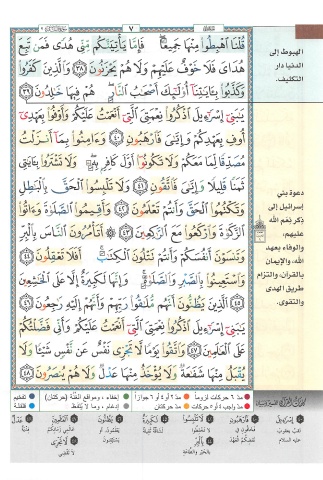 ٧
قُلْنَا ٱهْبِطُوا۟ مِنْهَا جَمِيعًا ۖ فَإِمَّا يَأْتِيَنَّكُم مِّنِّى هُدًى فَمَن تَبِعَ
هُدَاىَ فَلَا خَوْفٌ عَلَيْهِمْ وَلَا هُمْ يَحْزَنُونَ ٣٨ وَٱلَّذِينَ كَفَرُوا۟
وَكَذَّبُوا۟ بِـَٔايَـٰتِنَآ أُو۟لَـٰٓئِكَ أَصْحَـٰبُ ٱلنَّارِ ۖ هُمْ فِيهَا خَـٰلِدُونَ ٣٩
يَـٰبَنِىٓ إِسْرَٰٓءِيلَ ٱذْكُرُوا۟ نِعْمَتِىَ ٱلَّتِىٓ أَنْعَمْتُ عَلَيْكُمْ وَأَوْفُوا۟ بِعَهْدِىٓ
أُوفِ بِعَهْدِكُمْ وَإِيَّـٰىَ فَٱرْهَبُونِ ٤٠ وَءَامِنُوا۟ بِمَآ أَنزَلْتُ
مُصَدِّقًا لِّمَا مَعَكُمْ وَلَا تَكُونُوٓا۟ أَوَّلَ كَافِرٍۭ بِهِۦ ۖ وَلَا تَشْتَرُوا۟ بِـَٔايَـٰتِى
ثَمَنًا قَلِيلًا وَإِيَّـٰىَ فَٱتَّقُونِ ٤١ وَلَا تَلْبِسُوا۟ ٱلْحَقَّ بِٱلْبَـٰطِلِ
وَتَكْتُمُوا۟ ٱلْحَقَّ وَأَنتُمْ تَعْلَمُونَ ٤٢ وَأَقِيمُوا۟ ٱلصَّلَوٰةَ وَءَاتُوا۟
ٱلزَّكَوٰةَ وَٱرْكَعُوا۟ مَعَ ٱلرَّٰكِعِينَ ٤٣ أَتَأْمُرُونَ ٱلنَّاسَ بِٱلْبِرِّ
وَتَنسَوْنَ أَنفُسَكُمْ وَأَنتُمْ تَتْلُونَ ٱلْكِتَـٰبَ ۚ أَفَلَا تَعْقِلُونَ ٤٤
وَٱسْتَعِينُوا۟ بِٱلصَّبْرِ وَٱلصَّلَوٰةِ ۚ وَإِنَّهَا لَكَبِيرَةٌ إِلَّا عَلَى ٱلْخَـٰشِعِينَ
٤٥ ٱلَّذِينَ يَظُنُّونَ أَنَّهُم مُّلَـٰقُوا۟ رَبِّهِمْ وَأَنَّهُمْ إِلَيْهِ رَٰجِعُونَ ٤٦
يَـٰبَنِىٓ إِسْرَٰٓءِيلَ ٱذْكُرُوا۟ نِعْمَتِىَ ٱلَّتِىٓ أَنْعَمْتُ عَلَيْكُمْ وَأَنِّى فَضَّلْتُكُمْ
عَلَى ٱلْعَـٰلَمِينَ ٤٧ وَٱتَّقُوا۟ يَوْمًا لَّا تَجْزِى نَفْسٌ عَن نَّفْسٍ شَيْـًٔا وَلَا
يُقْبَلُ مِنْهَا شَفَـٰعَةٌ وَلَا يُؤْخَذُ مِنْهَا عَدْلٌ وَلَا هُمْ يُنصَرُونَ ٤٨
الهبوط إلى
الدنيا دار
التكليف.
دعوة بني
إسرائيل إلى
ذكر نعم الله
عليهم،
والوفاء بعهد
الله، والإيمان
بالقرآن، والتزام
طريق الهدى
والتقوى.
مدّ ٦ حركات لزوماً مدّ ٢ أو ٤ أو ٦ جوازاً إخفاء، ومواقع الغُنّة (حركتان) تفخيم
مدّ واجب ٤ أو ٥ حركات مدّ حركتان إدغام، وما لا يُلفظ قلقلة